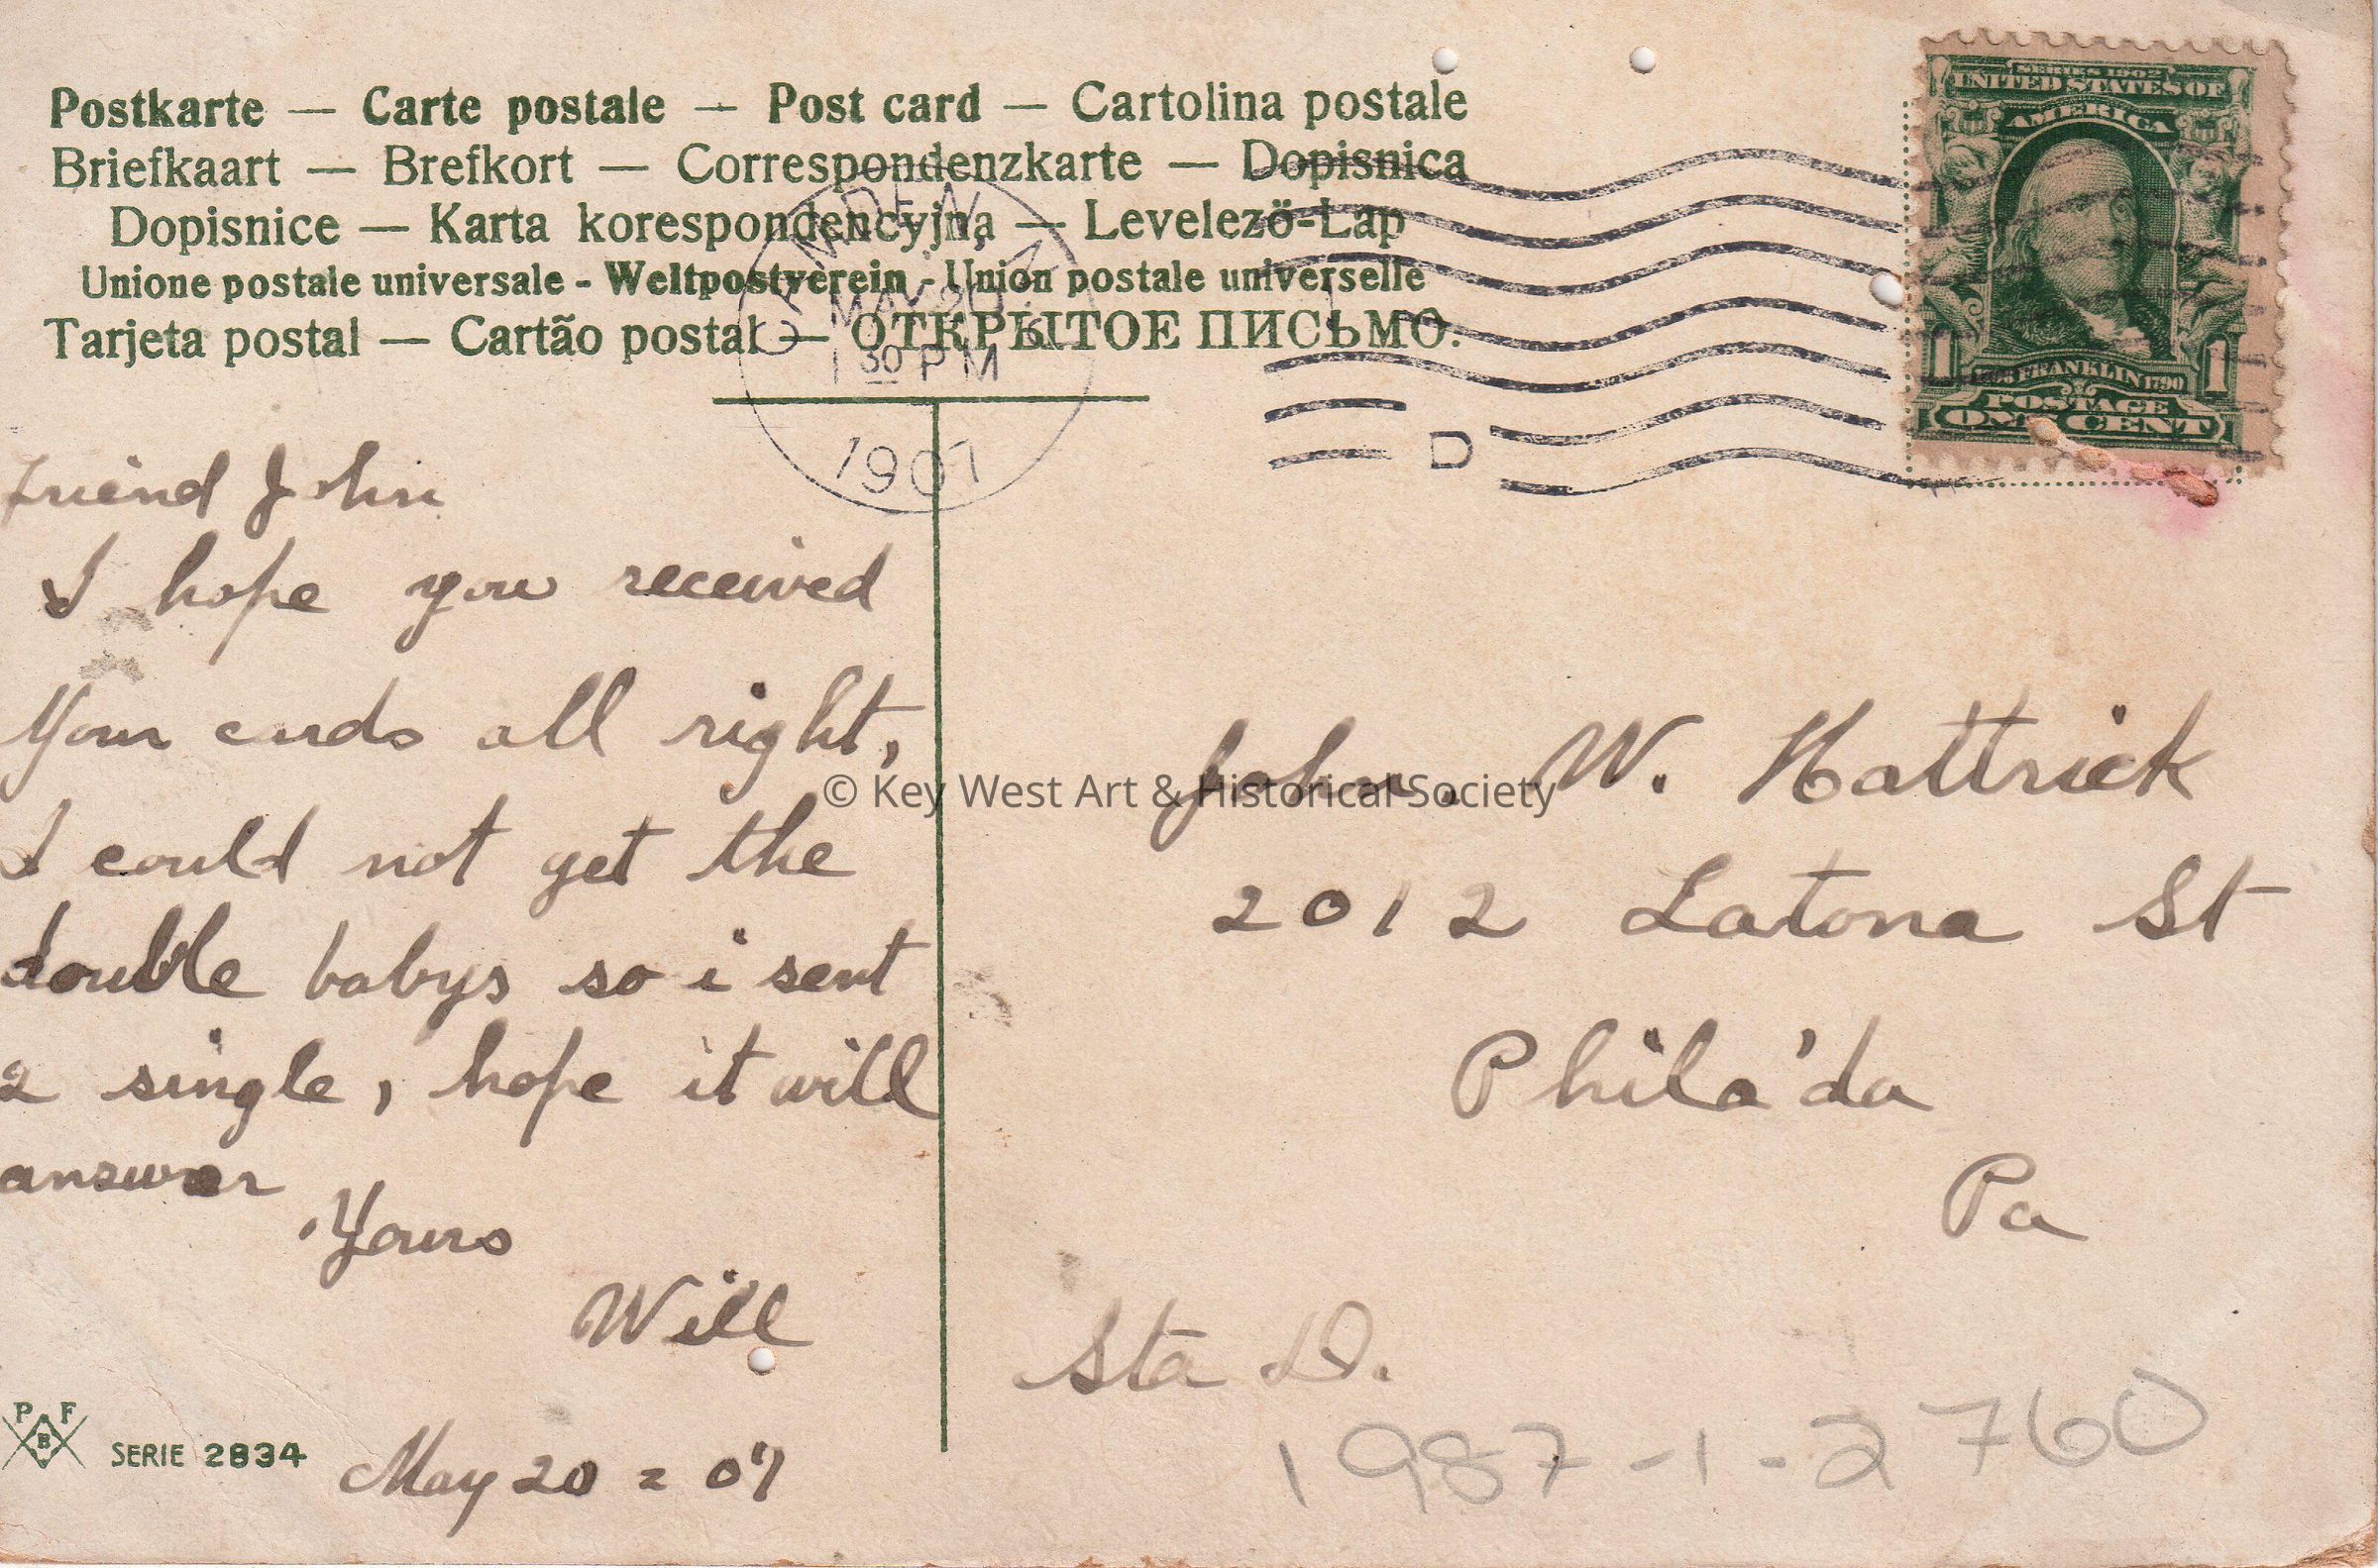 Postkarte — Carte postale — Post card — Cartolina postale
Briefkaart — Brefkort — Correspondenzkarte — Dopisnica
Dopisnice — Karta korespondencyjna — Levelezö-Lap
Unione postale universale - Weltpostverein - Union postale universelle
Tarjeta postal — Cartão postal — ОТКРЫТОЕ ПИСЬМО.
SERIES 1902
UNITED STATES OF
AMERICA
1 FRANKLIN 1790 1
POSTAGE
ONE CENT
CAMDEN, N.J.
MAY 20
1 30 PM
1907
D
Friend John
I hope you received
Your cards all right,
I could not get the
double babys so i sent
2 single, hope it will
answer
Yours
Will
May 20 = 07
P F
B
SERIE 2834
© Key West Art & Historical Society
John. W. Hattrick
2012 Latona St
Phila'da
Pa
Sta D.
1987-1-2760